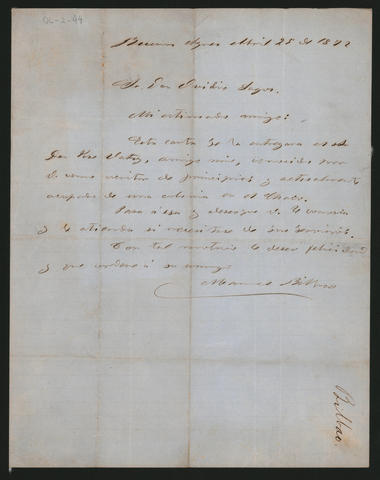 OL-2-44
Buenos Ayres Abril 25 de 1872
Sr. Don Ovidio Lagos.
Mi estimado amigo:
Esta carta se la entregara el Sr
Don amigo mio, conocido
como escritor de principios y actualmente
ocupado de una colonia en el Chaco.
Pasa á esa y deseo que Ud lo conozca
y lo atienda si necesitase de sus servicios.
Con tal motivo le deseo felicidad
y que ordene á su amigo
Manuel Bilbao
Bilbao.